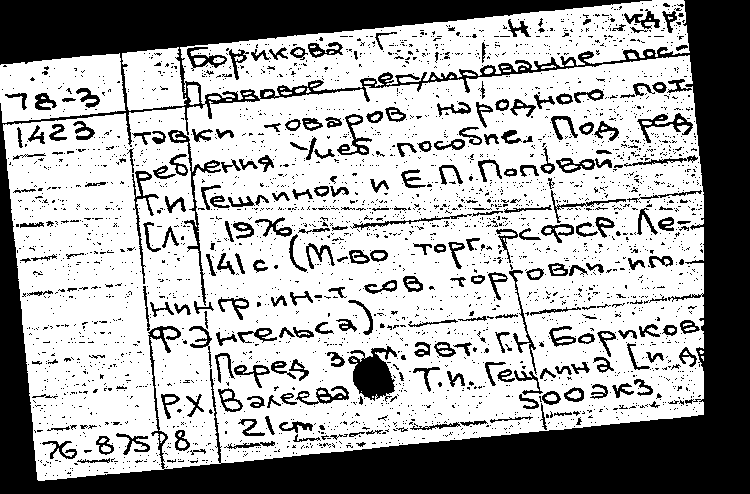 Борикова, Г. Н. и др.
78-3 Правовое регулирование пос-
1423 тавки товаров народного пот-
ребления. Учеб. пособие. Под ред
Т.И. Гешлиной и Е.П. Поповой.
[Л.], 1976.
141 с. (М-во торг. РСФСР. Ле-
нингр. ин-т сов. торговли им.
Ф. Энгельса).
Перед загл. авт.: Г.Н. Борикова
Р.Х. Валеева, Т.И. Гешлина [и др
21 см. 500экз.
76-87578